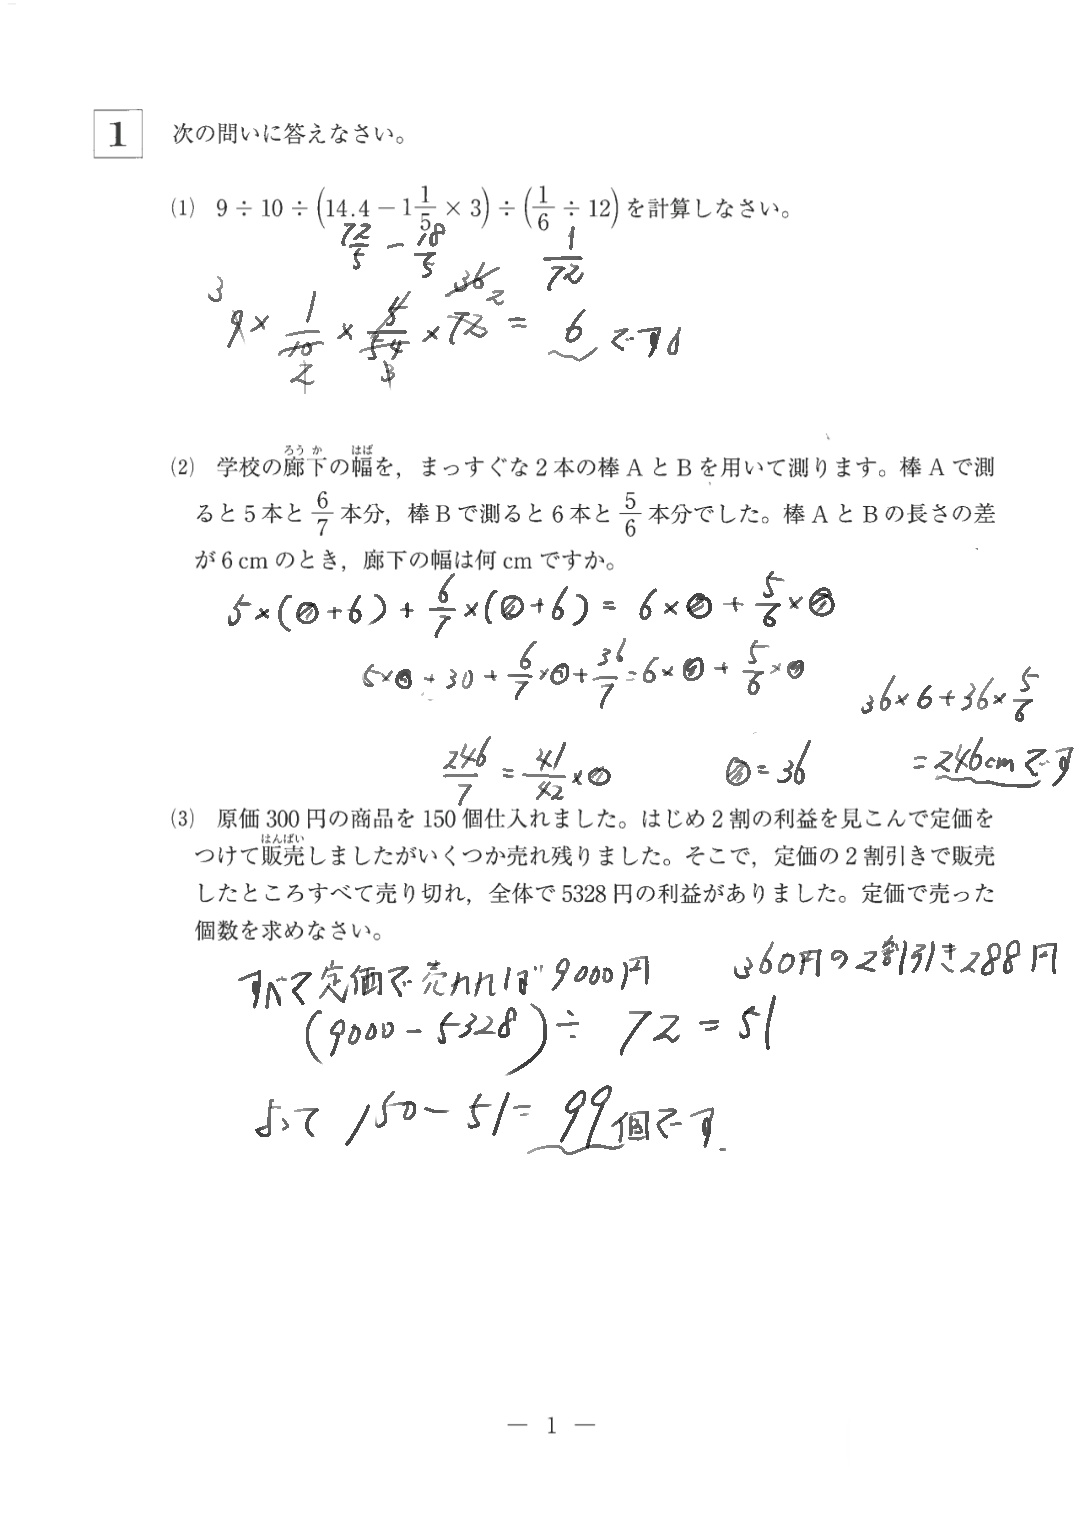 1 次の問いに答えなさい。
(1) 9÷10÷(14.4－1 1/5×3)÷(1/6÷12)を計算しなさい。
72/5 － 18/5 1/72
3 36 2
9×1/10×5/54×72＝6です。
2 3
(2) 学校の廊下の幅を，まっすぐな2本の棒AとBを用いて測ります。棒Aで測
ろうか はば
ると5本と6/7本分，棒Bで測ると6本と5/6本分でした。棒AとBの長さの差
が6cmのとき，廊下の幅は何cmですか。
5×(◎+6)+6/7×(◎+6)=6×◎+5/6×◎
5×◎+30+6/7×◎+36/7=6×◎+5/6×◎
36×6+36×5/6
246/7=41/42×◎ ◎=36 =246cmです
(3) 原価300円の商品を150個仕入れました。はじめ2割の利益を見こんで定価を
はんばい
つけて販売しましたがいくつか売れ残りました。そこで，定価の2割引きで販売
したところすべて売り切れ，全体で5328円の利益がありました。定価で売った
個数を求めなさい。
すべて定価で売れれば9000円 360円の2割引き288円
(9000－5328)÷72=51
よって150－51=99個です.
― 1 ―